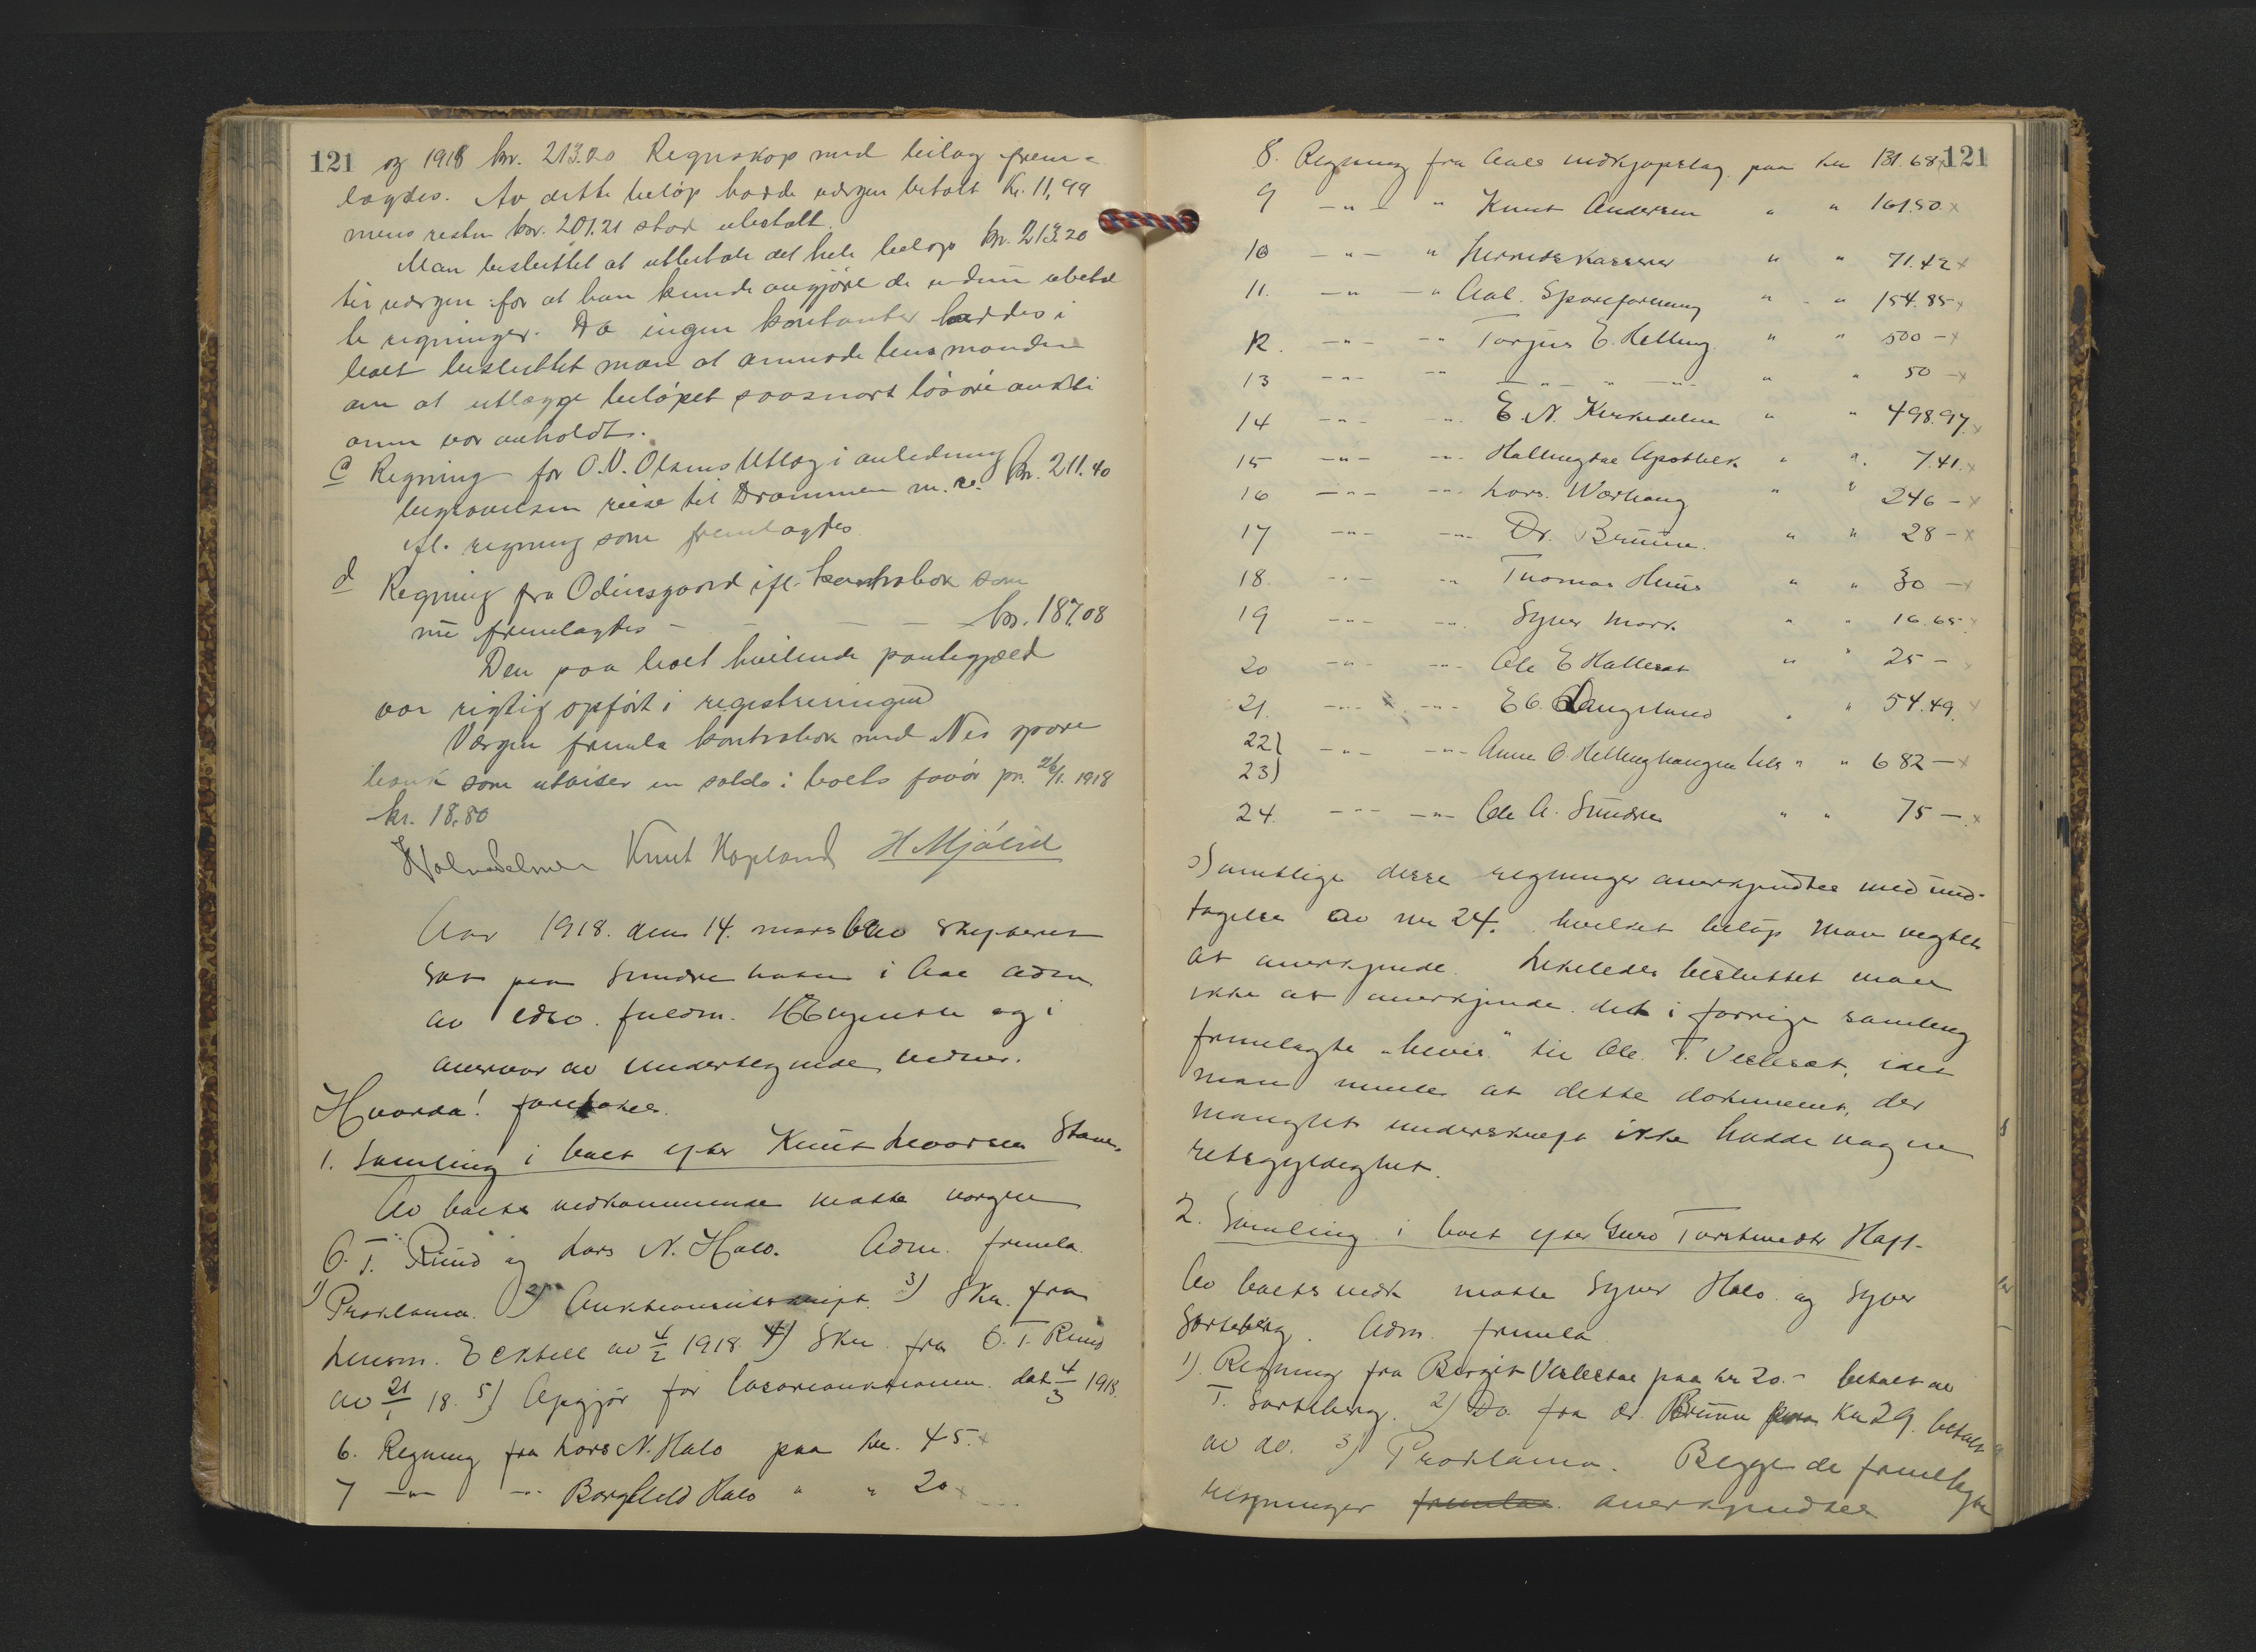 121 og 1918 kr. 213.20 Regnskap med bilag frem-
lagdes. Av dette beløp hadde vergen betalt Kr. 11,99
mens resten kr. 201.21 stod ubetalt.
Man besluttet at utbetale det hele beløp kr. 213.20
til vergen for at han kunde avgjøre de endnu ubetal
te regninger. Da ingen kontanter haddes i
boet besluttet man at anmode lensmanden
om at utlægge beløpet saasnart løsøreaukti
onen var avholdt.
c Regning for O.N. Olsens Utlæg i anledning
begravelsen reise til Drammen m.v. kr. 211.40
ifl. regning som fremlagdes
d Regning fra Odinsgaard ifl. kontrabok som
nu fremlagdes - - - - kr. 187.08
Den paa boet hvilende pantegjæld
var rigtig opført i registreringen
Vergen fremla kontrabok med Nes spare
bank som utviser en saldo i boets favør pr. 26/1. 1918
kr. 18.80
Knut Kopland H Mjølid
Aar 1918. den 14. mars blev skifteret
sat paa Sundre hotel i Aal adm.
av edsv. fuldm. og i
overvær av undertegnede vidner.
Hvorda! foretokes.
1. Samling i boet efter Knut Levorsen
Av boets vedkommende møtte vergen
O. T. Ruud og Lars N. Halo. Adm. fremla
1) Proklama. 2) Auktionsutskrift. 3) Skr. fra
lensm. av 4/2 1918. 4) Skr. fra O. T. Ruud
av 21/1 18. 5) Opgjør for løsøreauktionen dat 4/3 1918.
6. Regning fra Lars N. Halo paa kr. 45. x
7 -"- -"- Borghild Halo " " 20 x
8. Regning fra Aals indkjøpslag paa kr 131.68 x 121
9 -"- " Knut Andersen " " 161.50 x
10 -"- " Herredskasserer " " 71.42 x
11. -"- -" Aal Spareforening " " 154.85 x
12. -"- -" Torjus E. Helling " " 500 - x
13 -"- -"- -"- " -"- " " 50 - x
14 -"- -"- E. N. " " 498.97 x
15 -"- -"- Hallingdal Apothek " " 7.41. x
16 -"- -"- Lars. " " 246 - x
17 -"- -"- Dr. Bruun. " " 28 - x
18. -"- -"- Thomas Huus " " 30 - x
19 -"- -"- Syver " " 16.65 x
20 -"- -"- Ole E " " 25 - x
21. -"- -"- E G. Langeland " " 54.49. x
22)
23) -"- -"- Anne O. Hellinghaugen tils " " 682 - x
24. -"- -"- Ole A. Sundre " " 75 - x
Samtlige disse regninger anerkjendtes med und-
tagelse av nr 24. hvilket beløp man negtet
at anerkjende. Likeledes besluttet man
ikke at anerkjende det i forrige samling
fremlagte "bevis" til Ole. T. idet
man mente at dette dokument, der
manglet underskrift ikke hadde nogen
retsgyldighet.
2. Samling i boet efter Guro
Av boets vedk møtte Syver Halo og Syver
Sorteberg. Adm. fremla
1). Regning fra Bergit paa kr 20.- betalt av
T. Sorteberg. 2) Do. fra dr. Bruun paa Kr 29. betalt
av do. 3) Proklama. Begge de fremlagte
regninger fremlaa anerkjendtes